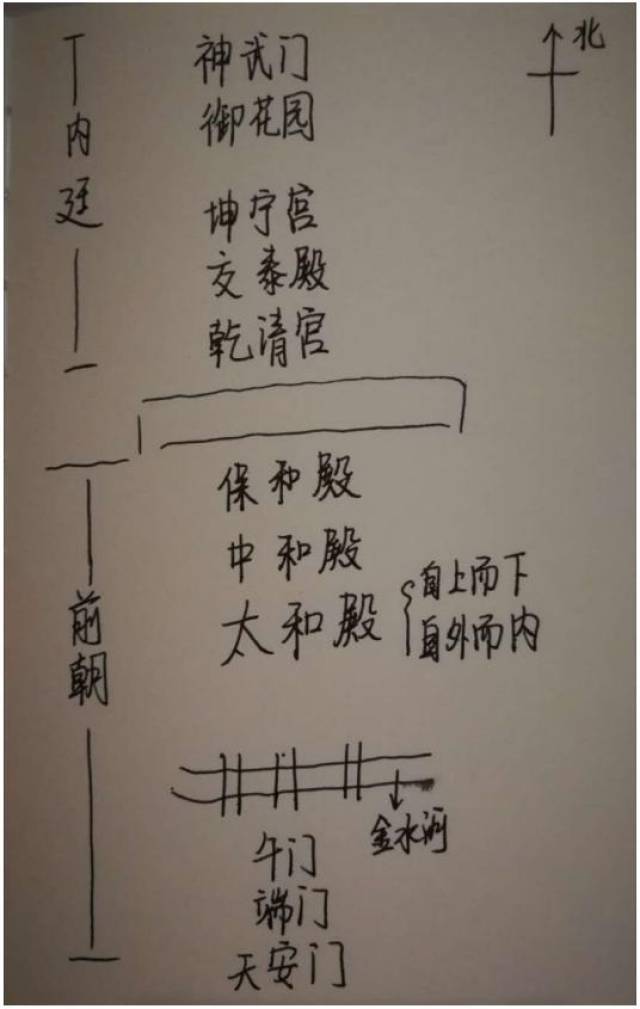 北
神武门
御花园
内廷
坤宁宫
交泰殿
乾清宫
保和殿
中和殿
太和殿
自上而下
自外而内
前朝
金水河
午门
端门
天安门